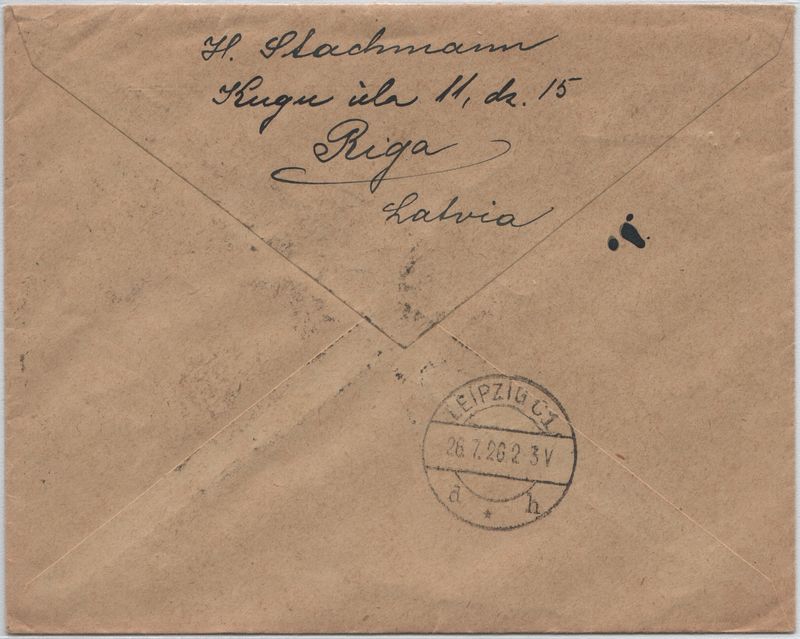 H. Stachmann
Kugu iela 11, dz. 15
Riga
Latvia
LEIPZIG C1
26.7.26 2-3 V
d * h